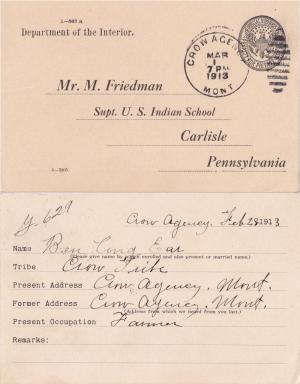 1—567 a
Department of the Interior.
CROW AGENCY
MAR
1
7 PM
1913
MONT
Mr. M. Friedman
Supt. U. S. Indian School
Carlisle
Pennsylvania
6—2505
Crow Agency, Feb 28 1913
Name Ben Long Ear
(Please give name by which enrolled and also present or married name.)
Tribe Crow Tribe
Present Address Crow Agency, Mont.
Former Address Crow Agency, Mont
(Address from which we heard from you last.)
Present Occupation Farmer
Remarks: